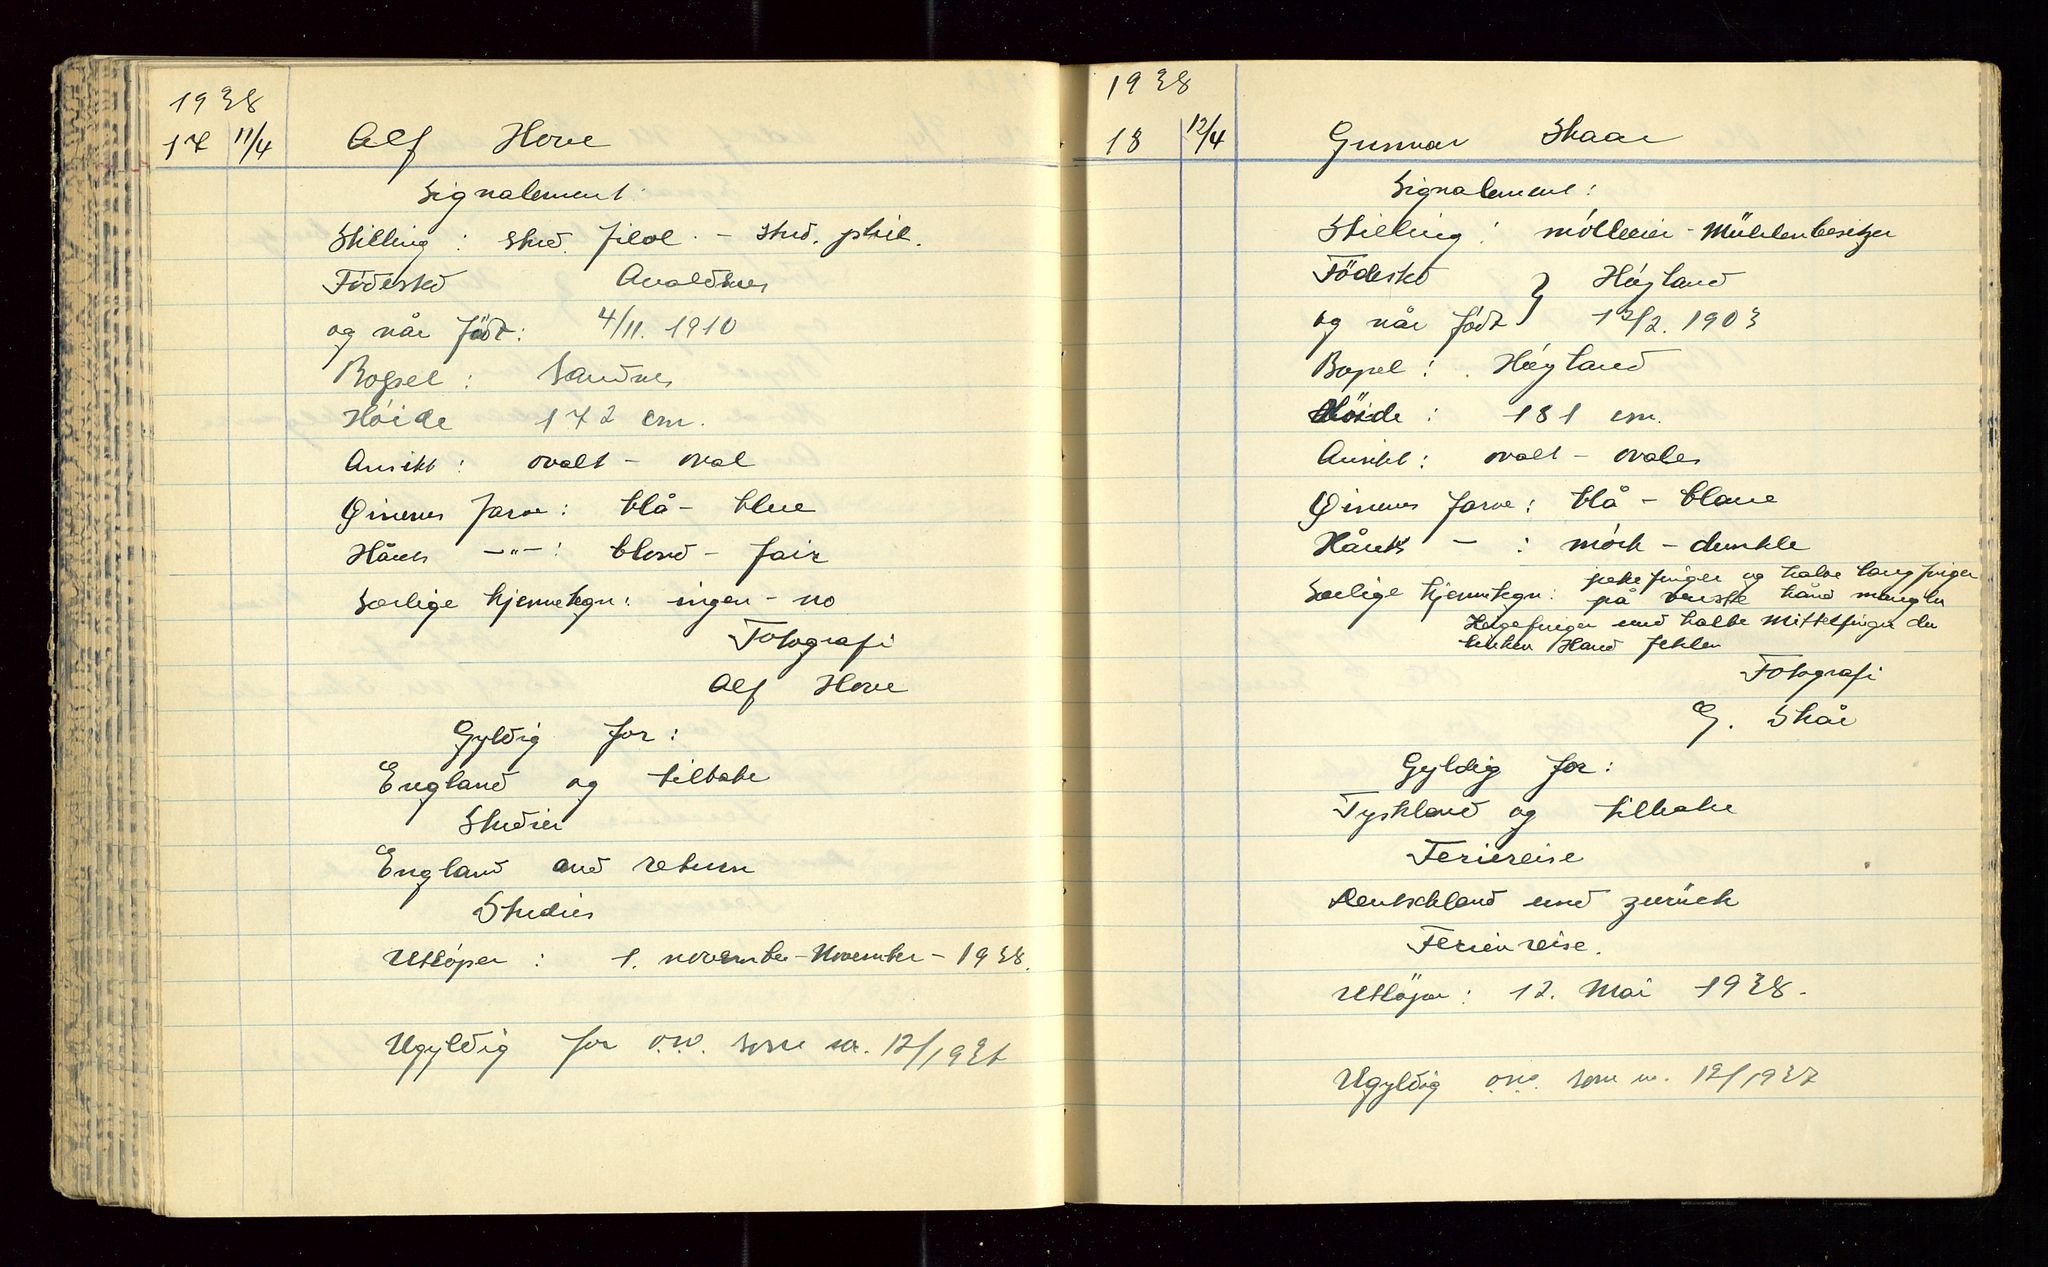 1938
17 11/4 Alf Hove
Signalement
Stilling: stud. filol. - stud. phil.
Födested Avaldsnes
og når født: 4/11. 1910
Bopel: Sandnes
Høide 172 cm.
Ansikt: ovalt - oval
Øinenes farve: blå - blue
Hårets -"-: blond - fair
Særlige kjennetegn: ingen - no
Fotografi
Alf Hove
Gyldig for:
England og tilbake
Studier
England and return
Studies
Utløper: 1. november - November - 1938.
Ugyldig for o.s.v. som nr. 12/1937
1938
18 12/4 Gunnar Skaar
Signalement:
Stilling: mølleeier - Mühlenbesitzer
Födested } Høyland
og når født } 12/2. 1903
Bopel: Høyland
Høide: 181 cm.
Ansikt: ovalt - ovales
Øinenes farve: blå - blaue
Hårets - : mørk - dunkle
Særlige kjennetegn: pekefinger og halve langfinger
på venstre hånd mangler
Zeigefinger und halbe Mittelfinger der
linken Hand fehlen
Fotografi
G. Skår
Gyldig for:
Tyskland og tilbake
Feriereise
Deutschland und zurück
Ferienreise.
Utløper: 12. Mai 1938.
Ugyldig o.s.v. som nr. 12/1937